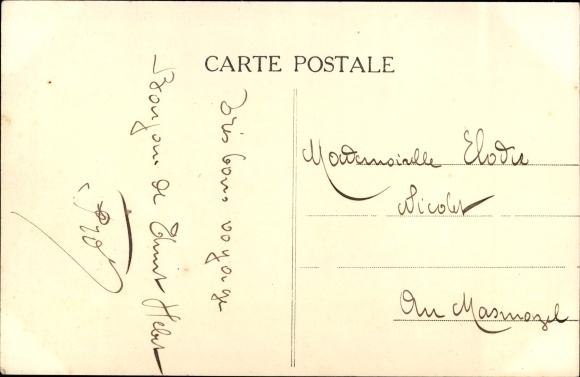 CARTE POSTALE
Très bons voyage
Bonjour de Ernest Hebert
Mademoiselle Elodie
Nicolet
Au Masmazel